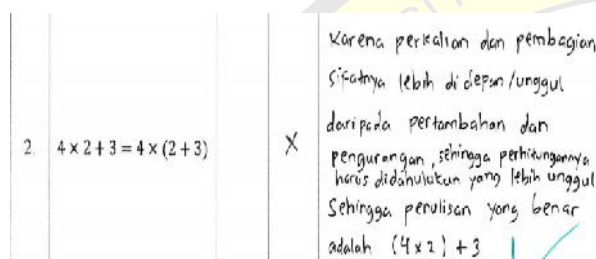 Karena perkalian dan pembagian
sifatnya lebih di depan/unggul
daripada pertambahan dan
2. 4 × 2 + 3 = 4 × (2 + 3) X pengurangan, sehingga perhitungannya
harus didahulukan yang lebih unggul
Sehingga penulisan yang benar
adalah (4 x 2) + 3